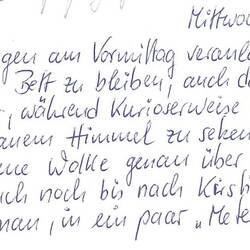 Mittwoc
gen am Vormittag veranl
Bett zu bleiben, auch d
, während Kurioserweise
auem Himmel zu sehen
ne Wolke genau über
uch noch bis nach
man, in ein paar „Mete